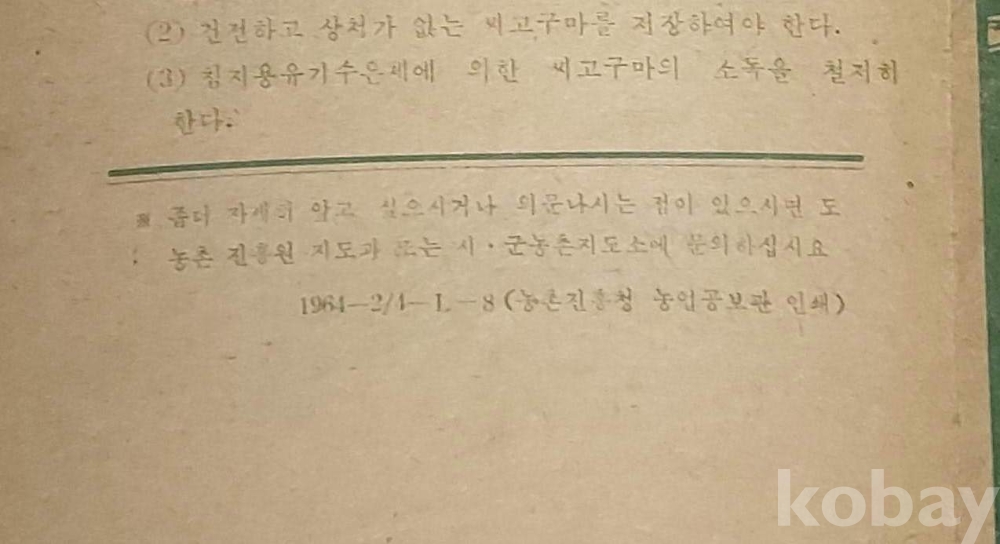 (2) 건전하고 상처가 없는 씨고구마를 저장하여야 한다.
(3) 침지용유기수은제에 의한 씨고구마의 소독을 철저히
한다.
※ 좀더 자세히 알고 싶으시거나 의문나시는 점이 있으시면 도
농촌 진흥원 지도과 또는 시·군농촌지도소에 문의하십시요
1964—2/4—L—8 (농촌진흥청 농업공보관 인쇄)
kobay